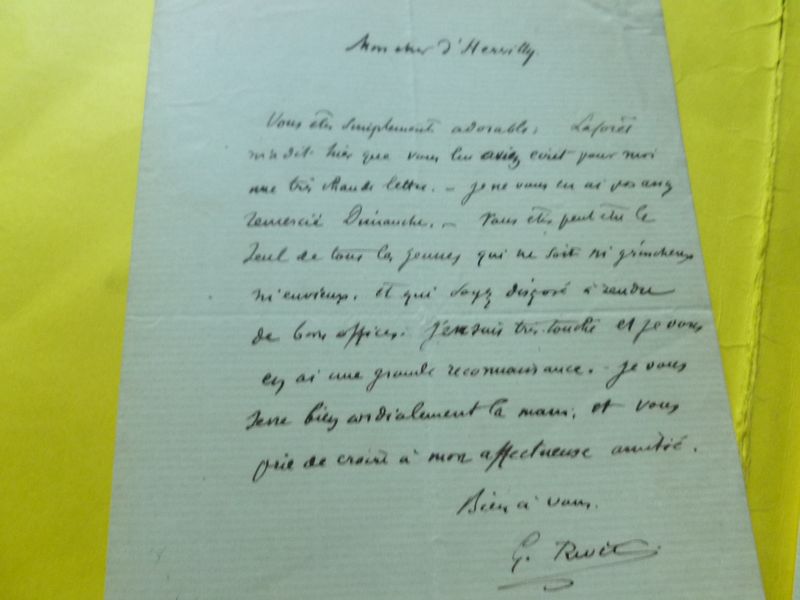 Mon cher d'Hervilly.
Vous êtes simplement adorable. Laforêt
m'a dit hier que vous lui aviez écrit pour moi
une très chaude lettre. – Je ne vous en ai pas assez
remercié Dimanche. – Vous êtes peut être le
seul de tous les jeunes qui ne soit ni grincheux
ni envieux, et qui soyez disposé à rendre
de bons offices. J'en suis très touché et je vous
en ai une grande reconnaissance. – Je vous
serre bien cordialement la main, et vous
prie de croire à mon affectueuse amitié.
Bien à vous.
G. Rivet